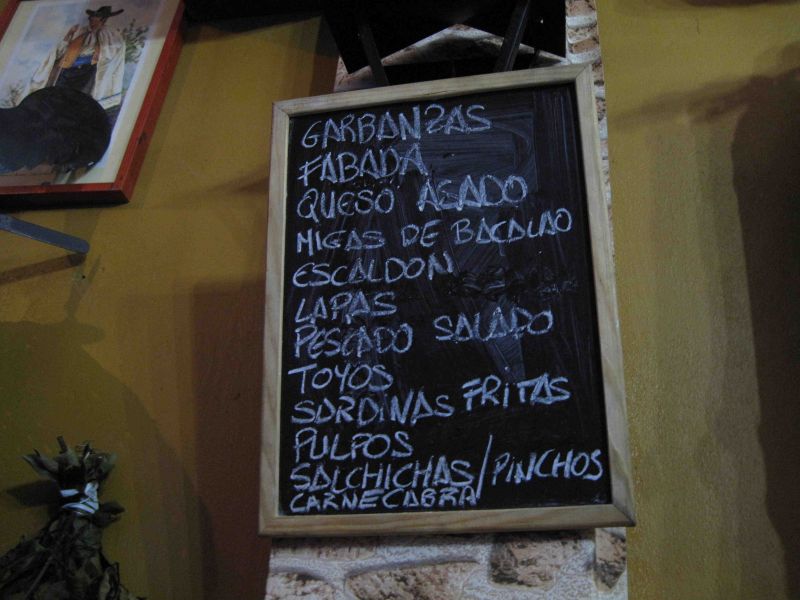 GARBANZAS
FABADA
QUESO ASADO
MIGAS DE BACALAO
ESCALDON
LAPAS
PESCADO SALADO
TOYOS
SARDINAS FRITAS
PULPOS
SALCHICHAS/PINCHOS
CARNECABRA